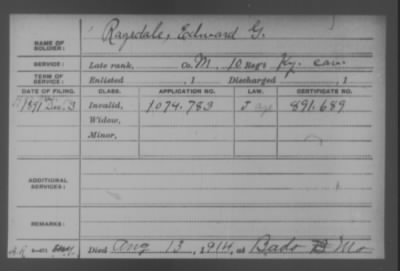 Ragsdale, Edward G.
NAME OF SOLDIER:
SERVICE: Late rank, Co. M, 10 Reg't Ky. Cav.
TERM OF SERVICE: Enlisted , 1 Discharged , 1
DATE OF FILING. CLASS. APPLICATION NO. LAW. CERTIFICATE NO.
1891 Dec. 3 Invalid, 1,074,783 J 891,689
Widow,
Minor,
ADDITIONAL SERVICES:
REMARKS:
Died Aug 13, 1914, at Bado Mo